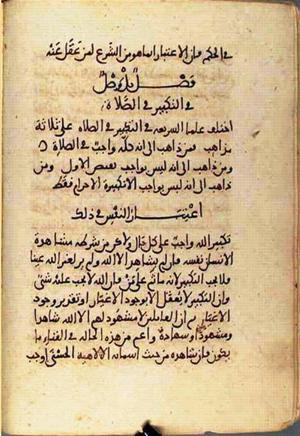 في الحكم فان الاعتبار انما هو من الشرع لمن عقل عنه
فصل بل وصل
في التكبير في الصلاة
اختلف علما الشريعه في التكبير في الصلاة على ثلاثة
مذاهب فمن ذاهب الى انه كله واجب في الصلاة
ومن ذاهب الى انه ليس بواجب نقيض الاول ومن
ذاهب الى انه ليس بواجب الا تكبيرة الاحرام فقط
اعتبار النفس في ذلك
تكبير الله واجب على كل حال ولا من شرطه مشاهدة
الانسان نفسه فان لم يشاهد الا الله ولم ير لغير الله عينا
ولا يجب التكبير لانه ما ثم على من فان الله لا يجب عليه شي
وان التكبير لا يعقل الا بوجود الاغيار او تقدير وجود
الاغيار ثم ان العابد لا مشهود لهم الا الله شاهدا
ومشهودا وشهادة واعم من هذه الحاله في الفناء ما
يكون فان شاهده من حيث اسمائه الالاهية الحسنى اوجب